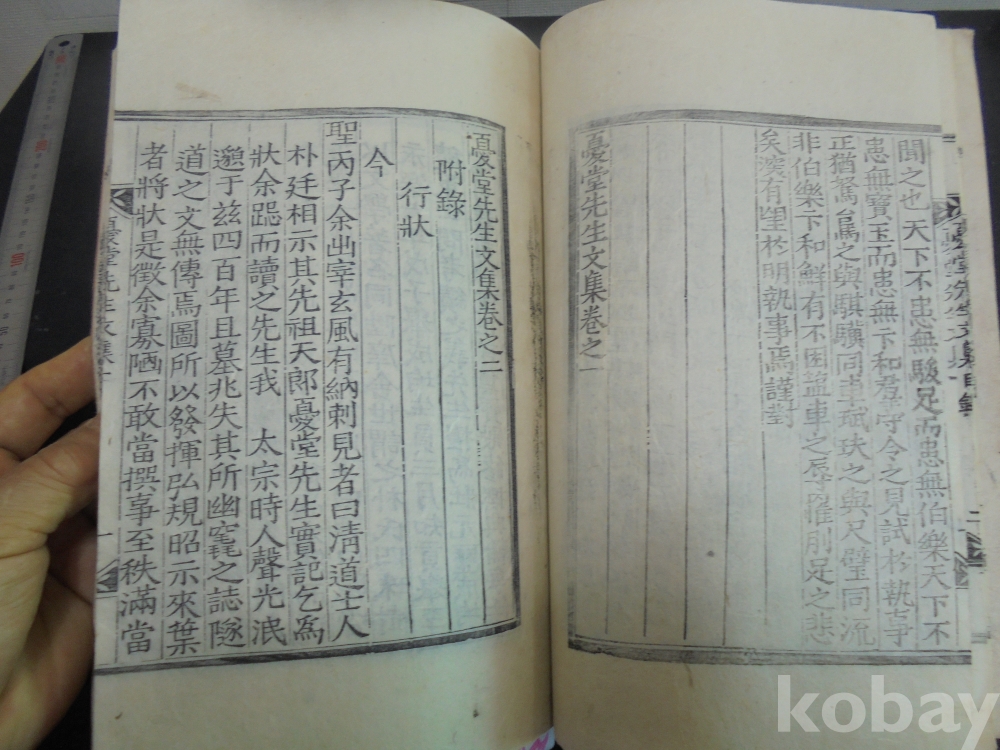 聞之也天下不患無駿足而患無伯樂天下不
患無寶玉而患無卞和君子守令之見試於執事
正猶駑駘之與騏驥同事珷玞之與尺璧同流
非伯樂卞和鮮有不困鹽車之辱罹刖足之悲
矣深有望於明執事焉謹對
憂堂先生文集卷之一
憂堂先生文集卷之二
附錄
行狀
今
聖丙子余出宰玄風有納刺見者曰淸道士人
朴廷相示其先祖天郎憂堂先生實記乞爲
狀余跽而讀之先生我 太宗時人聲光泯
邈于玆四百年且墓兆失其所幽竁之誌隧
道之文無傳焉圖所以發揮弘規昭示來葉
者將狀是徵余寡陋不敢當撰事至秩滿當
kobay